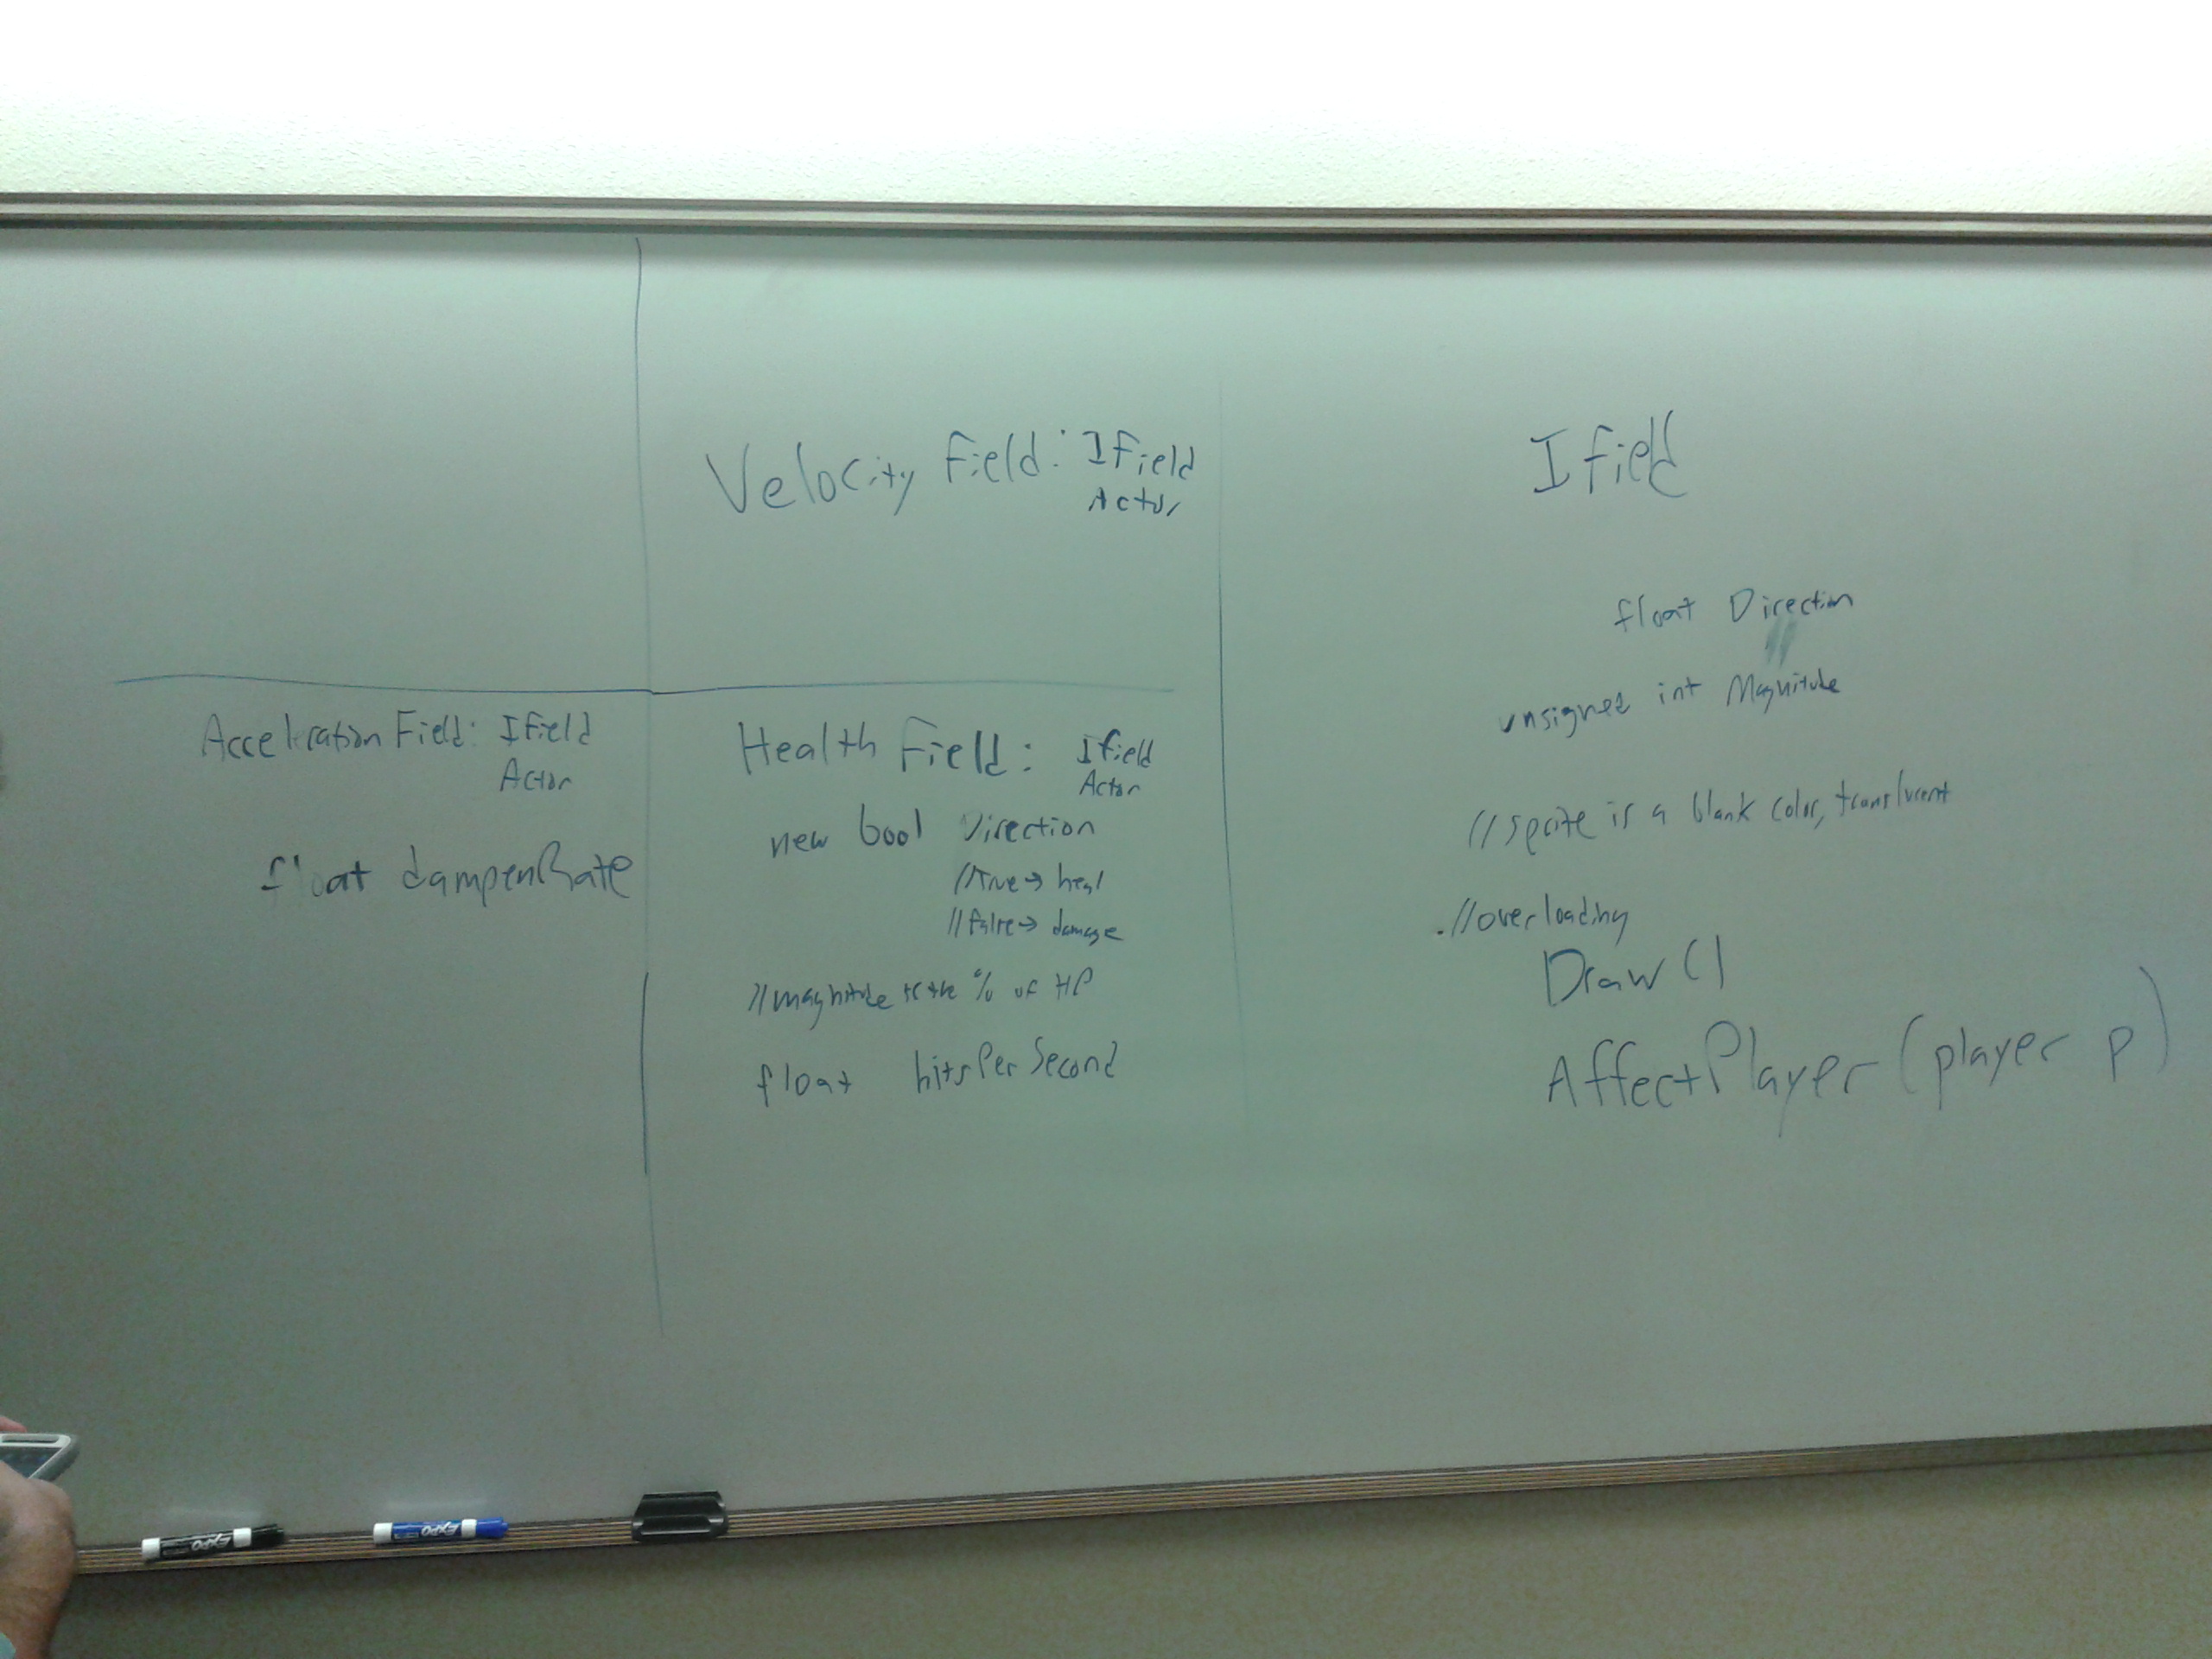 Velocity Field: IField
Actor
Acceleration Field: IField
Actor
float dampenRate
Health Field: Ifield
Actor
new bool Direction
//true→ heal
//false→ damage
//magnitude is the % of HP
float hitsPerSecond
Ifield
float Direction
unsigned int Magnitude
//sprite is a blank color, translucent
.//overloading
Draw()
AffectPlayer(player p)
EXPO
EXPO